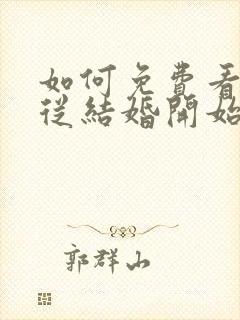 如何免費看
從結婚開始
郭群山